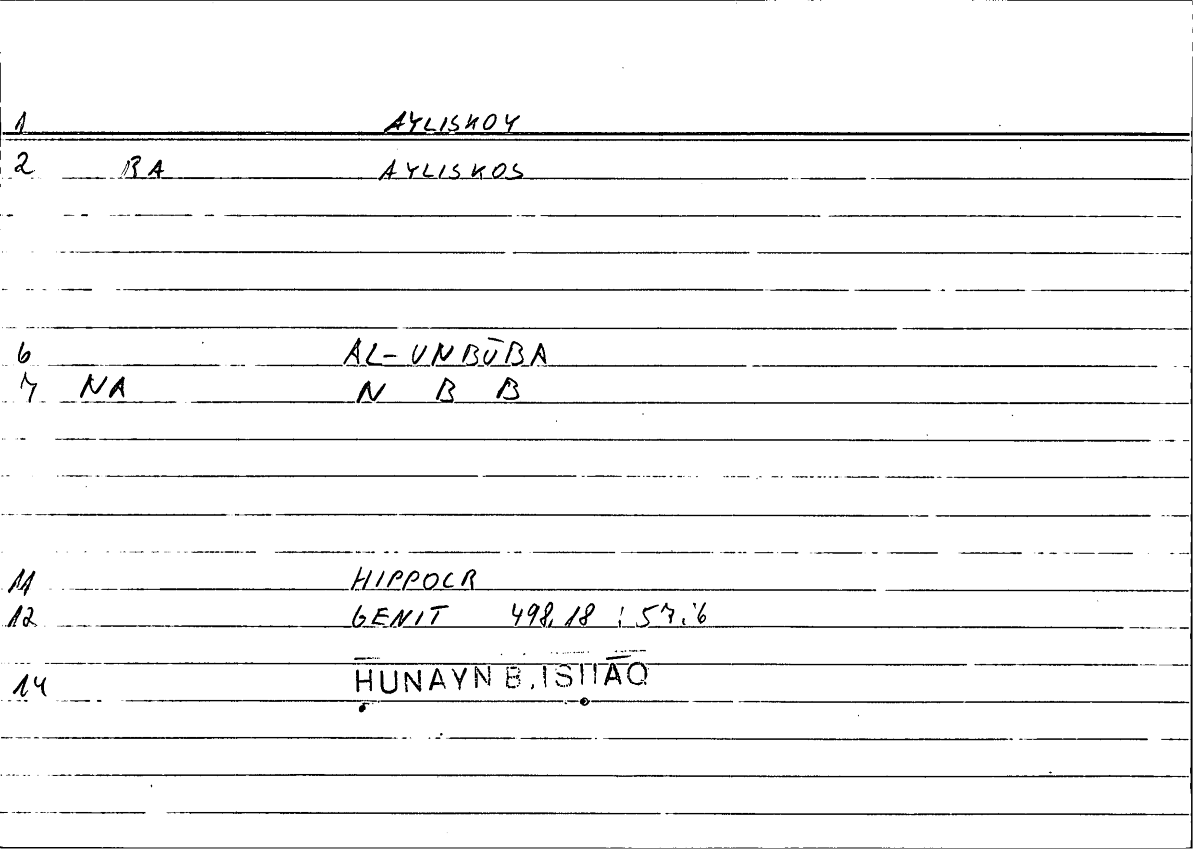 1 AYLISKOY
2 BA AYLISKOS
6 AL-UNBŪBA
7 NA N B B
11 HIPPOCR
12 GENIT 498,18 ; 57,6
14 ḤUNAYN B. ISḤĀQ